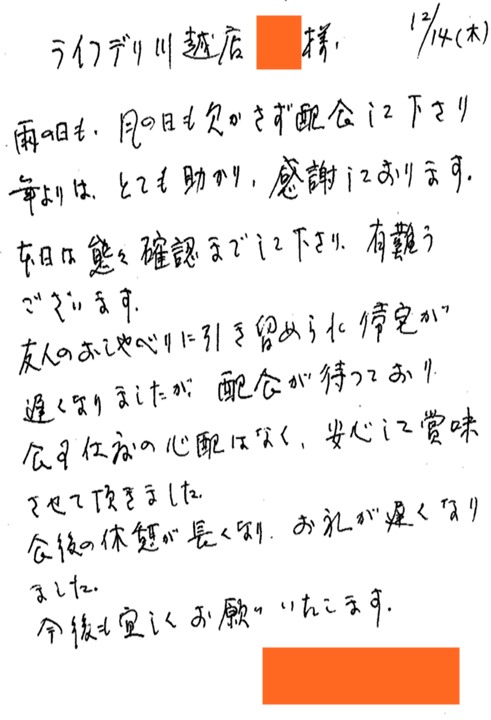 12/14(木)
ライフデリ川越店 様、
雨の日も、風の日も欠かさず配食して下さり
年よりは、とても助かり、感謝しております。
本日は態々確認までして下さり、有難う
ございます。
友人のおしゃべりに引き留められ帰宅が
遅くなりましたが、配食が待っており
食事仕度の心配はなく、安心して賞味
させて頂きました。
食後の休憩が長くなり、お礼が遅くなり
ました。
今後も宜しくお願いいたします。